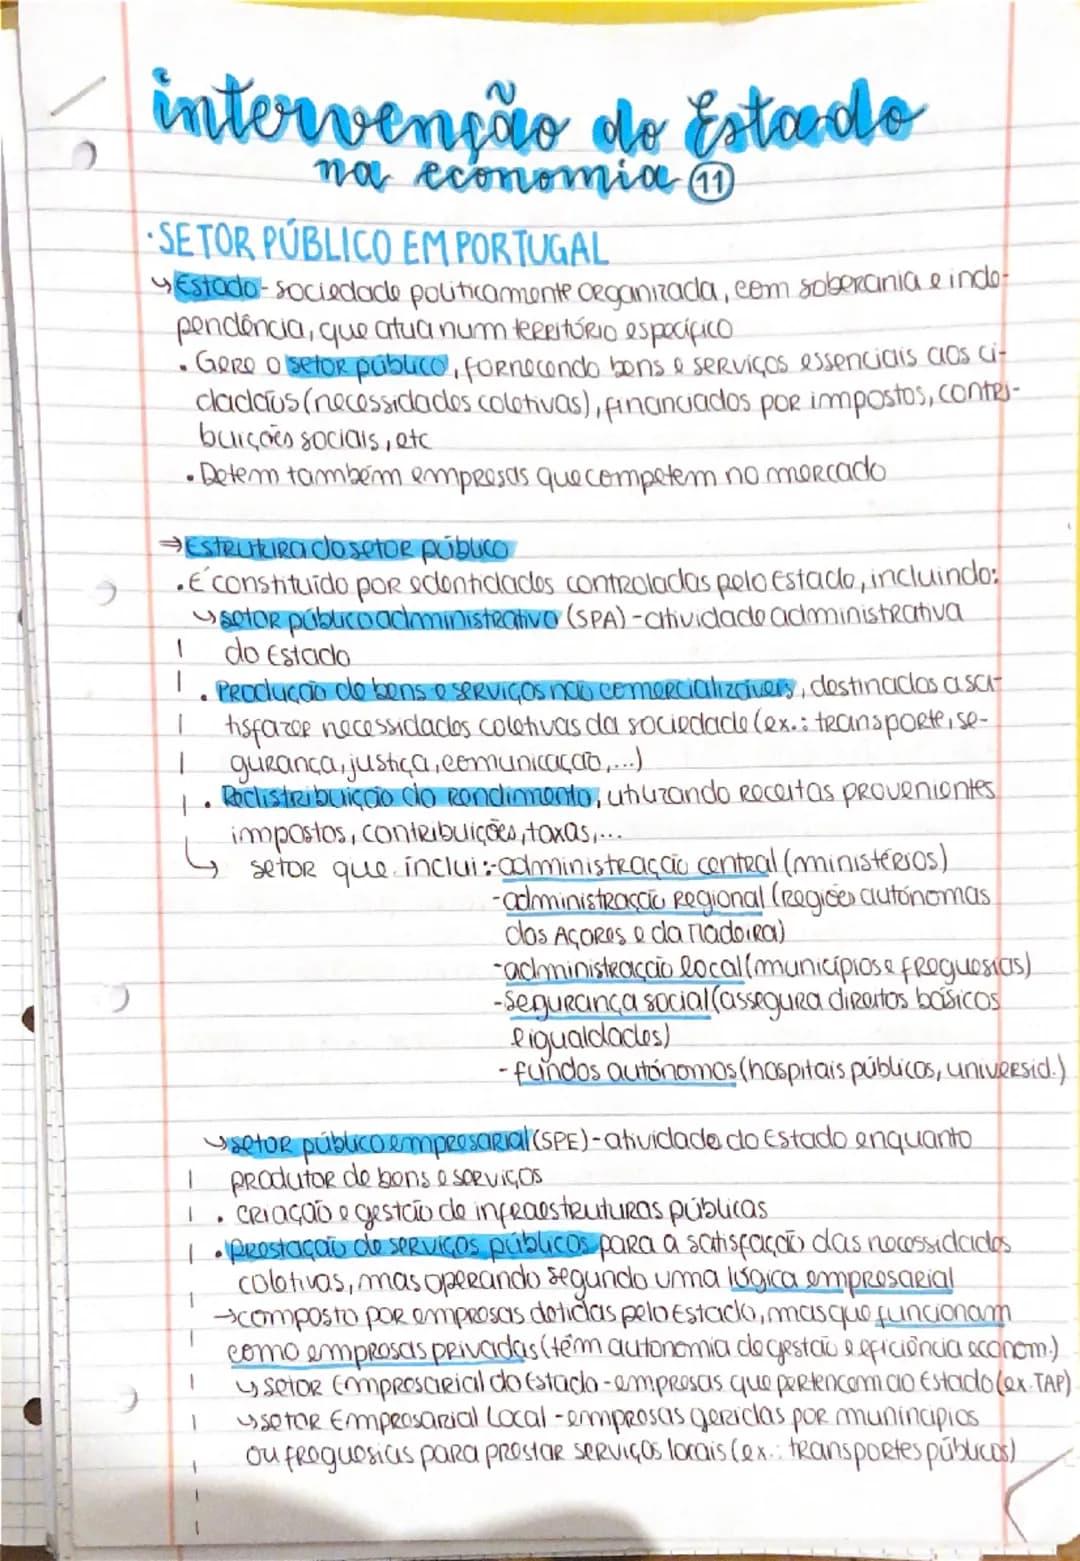 intervenção do Estado
na economia 11
·SETOR PÚBLICO EM PORTUGAL
↳Estado - sociedade politicamente organizada, com soberania e inde-
pendência, que atua num território específico
• Gere o setor público, fornecendo bens e serviços essenciais aos ci-
dadãos (necessidades coletivas), financiados por impostos, contri-
buições sociais, etc
• Detem também empresas que competem no mercado
⇒Estrutura do setor público
• É constituído por edentidades controladas pelo Estado, incluindo:
↳setor público administrativo (SPA) - atividade administrativa
do Estado
• Produção de bens e serviços não comercializáveis, destinados a sa-
tisfazer necessidades coletivas da sociedade (ex.: transporte, se-
gurança, justiça, comunicação,...)
• Redistribuição do rendimento, utilizando receitas provenientes
impostos, contribuições, taxas,...
↳ setor que inclui: -administração central (ministérios)
-administração regional (regiões autónomas
dos Açores e da Madeira)
-administração local (municípios e freguesias)
-Segurança social (assegura direitos básicos
e igualdades)
- fundos autónomos (hospitais públicos, universid.)
↳setor público empresarial (SPE) - atividade do Estado enquanto
produtor de bens e serviços
• criação e gestão de infraestruturas públicas
• Prestação de serviços públicos para a satisfação das necessidades
coletivas, mas operando segundo uma lógica empresarial
→composto por empresas detidas pelo Estado, mas que funcionam
como empresas privadas (têm autonomia de gestão e eficiência econom.)
↳ setor Empresarial do Estado - empresas que pertencem ao Estado (ex. TAP)
↳setor Empresarial Local - empresas geridas por munincipios
ou freguesias para prestar serviços locais (ex.: transportes públicos)